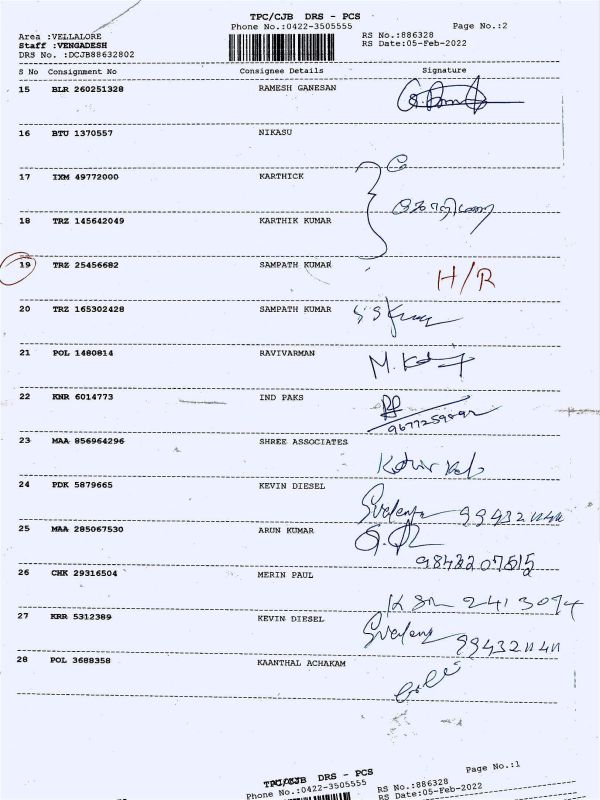 TPC/CJB DRS - PCS
Phone No.:0422-3505555
Page No.:2
Area :VELLALORE
Staff :VENGADESH
DRS No. :DCJB88632802
RS No.:886328
RS Date:05-Feb-2022
S No Consignment No Consignee Details Signature
15 BLR 260251328 RAMESH GANESAN
16 BTU 1370557 NIKASU
17 IXM 49772000 KARTHICK
18 TRZ 145642049 KARTHIK KUMAR
19 TRZ 25456682 SAMPATH KUMAR H/R
20 TRZ 165302428 SAMPATH KUMAR
21 POL 1480814 RAVIVARMAN
22 KNR 6014773 IND PAKS
23 MAA 856964296 SHREE ASSOCIATES
24 PDK 5879665 KEVIN DIESEL
25 MAA 285067530 ARUN KUMAR
26 CHK 29316504 MERIN PAUL
27 KRR 5312389 KEVIN DIESEL
28 POL 3688358 KAANTHAL ACHAKAM
TPC/CJB DRS - PCS
Phone No.:0422-3505555
Page No.:1
RS No.:886328
RS Date:05-Feb-2022